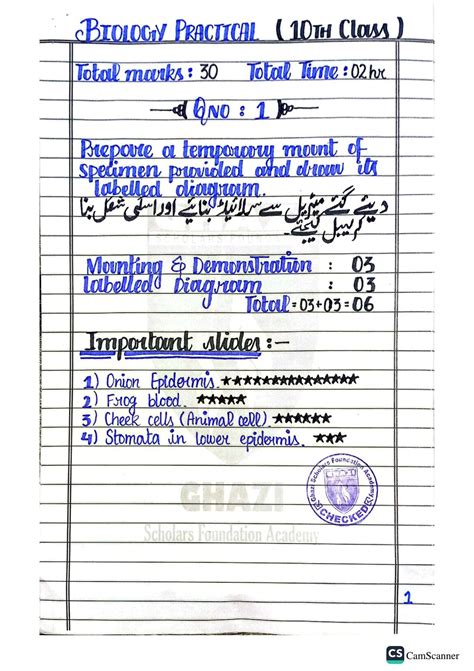 BIOLOGY PRACTICAL (10TH Class)
Total marks : 30 Total Time : 02 hr
QNO : 1
Prepare a temporary mount of
specimen provided and draw its
labelled diagram.
دیئے گئے میٹریل سے سلائیڈ بنائیے اور اسکی شکل بنا
کر لیبل کیجئے۔
Mounting & Demonstration : 03
labelled Diagram : 03
Total = 03+03 = 06
Important slides :-
1) Onion Epidermis. ★★★★★★★★★★★★★★★
2) Frog blood. ★★★★★
3) Cheek cells (Animal cell). ★★★★★★
4) Stomata in lower epidermis. ★★★
Ghazi Scholars Foundation Academy
CHECKED
GHAZI
Scholars Foundation Academy
1
CS CamScanner